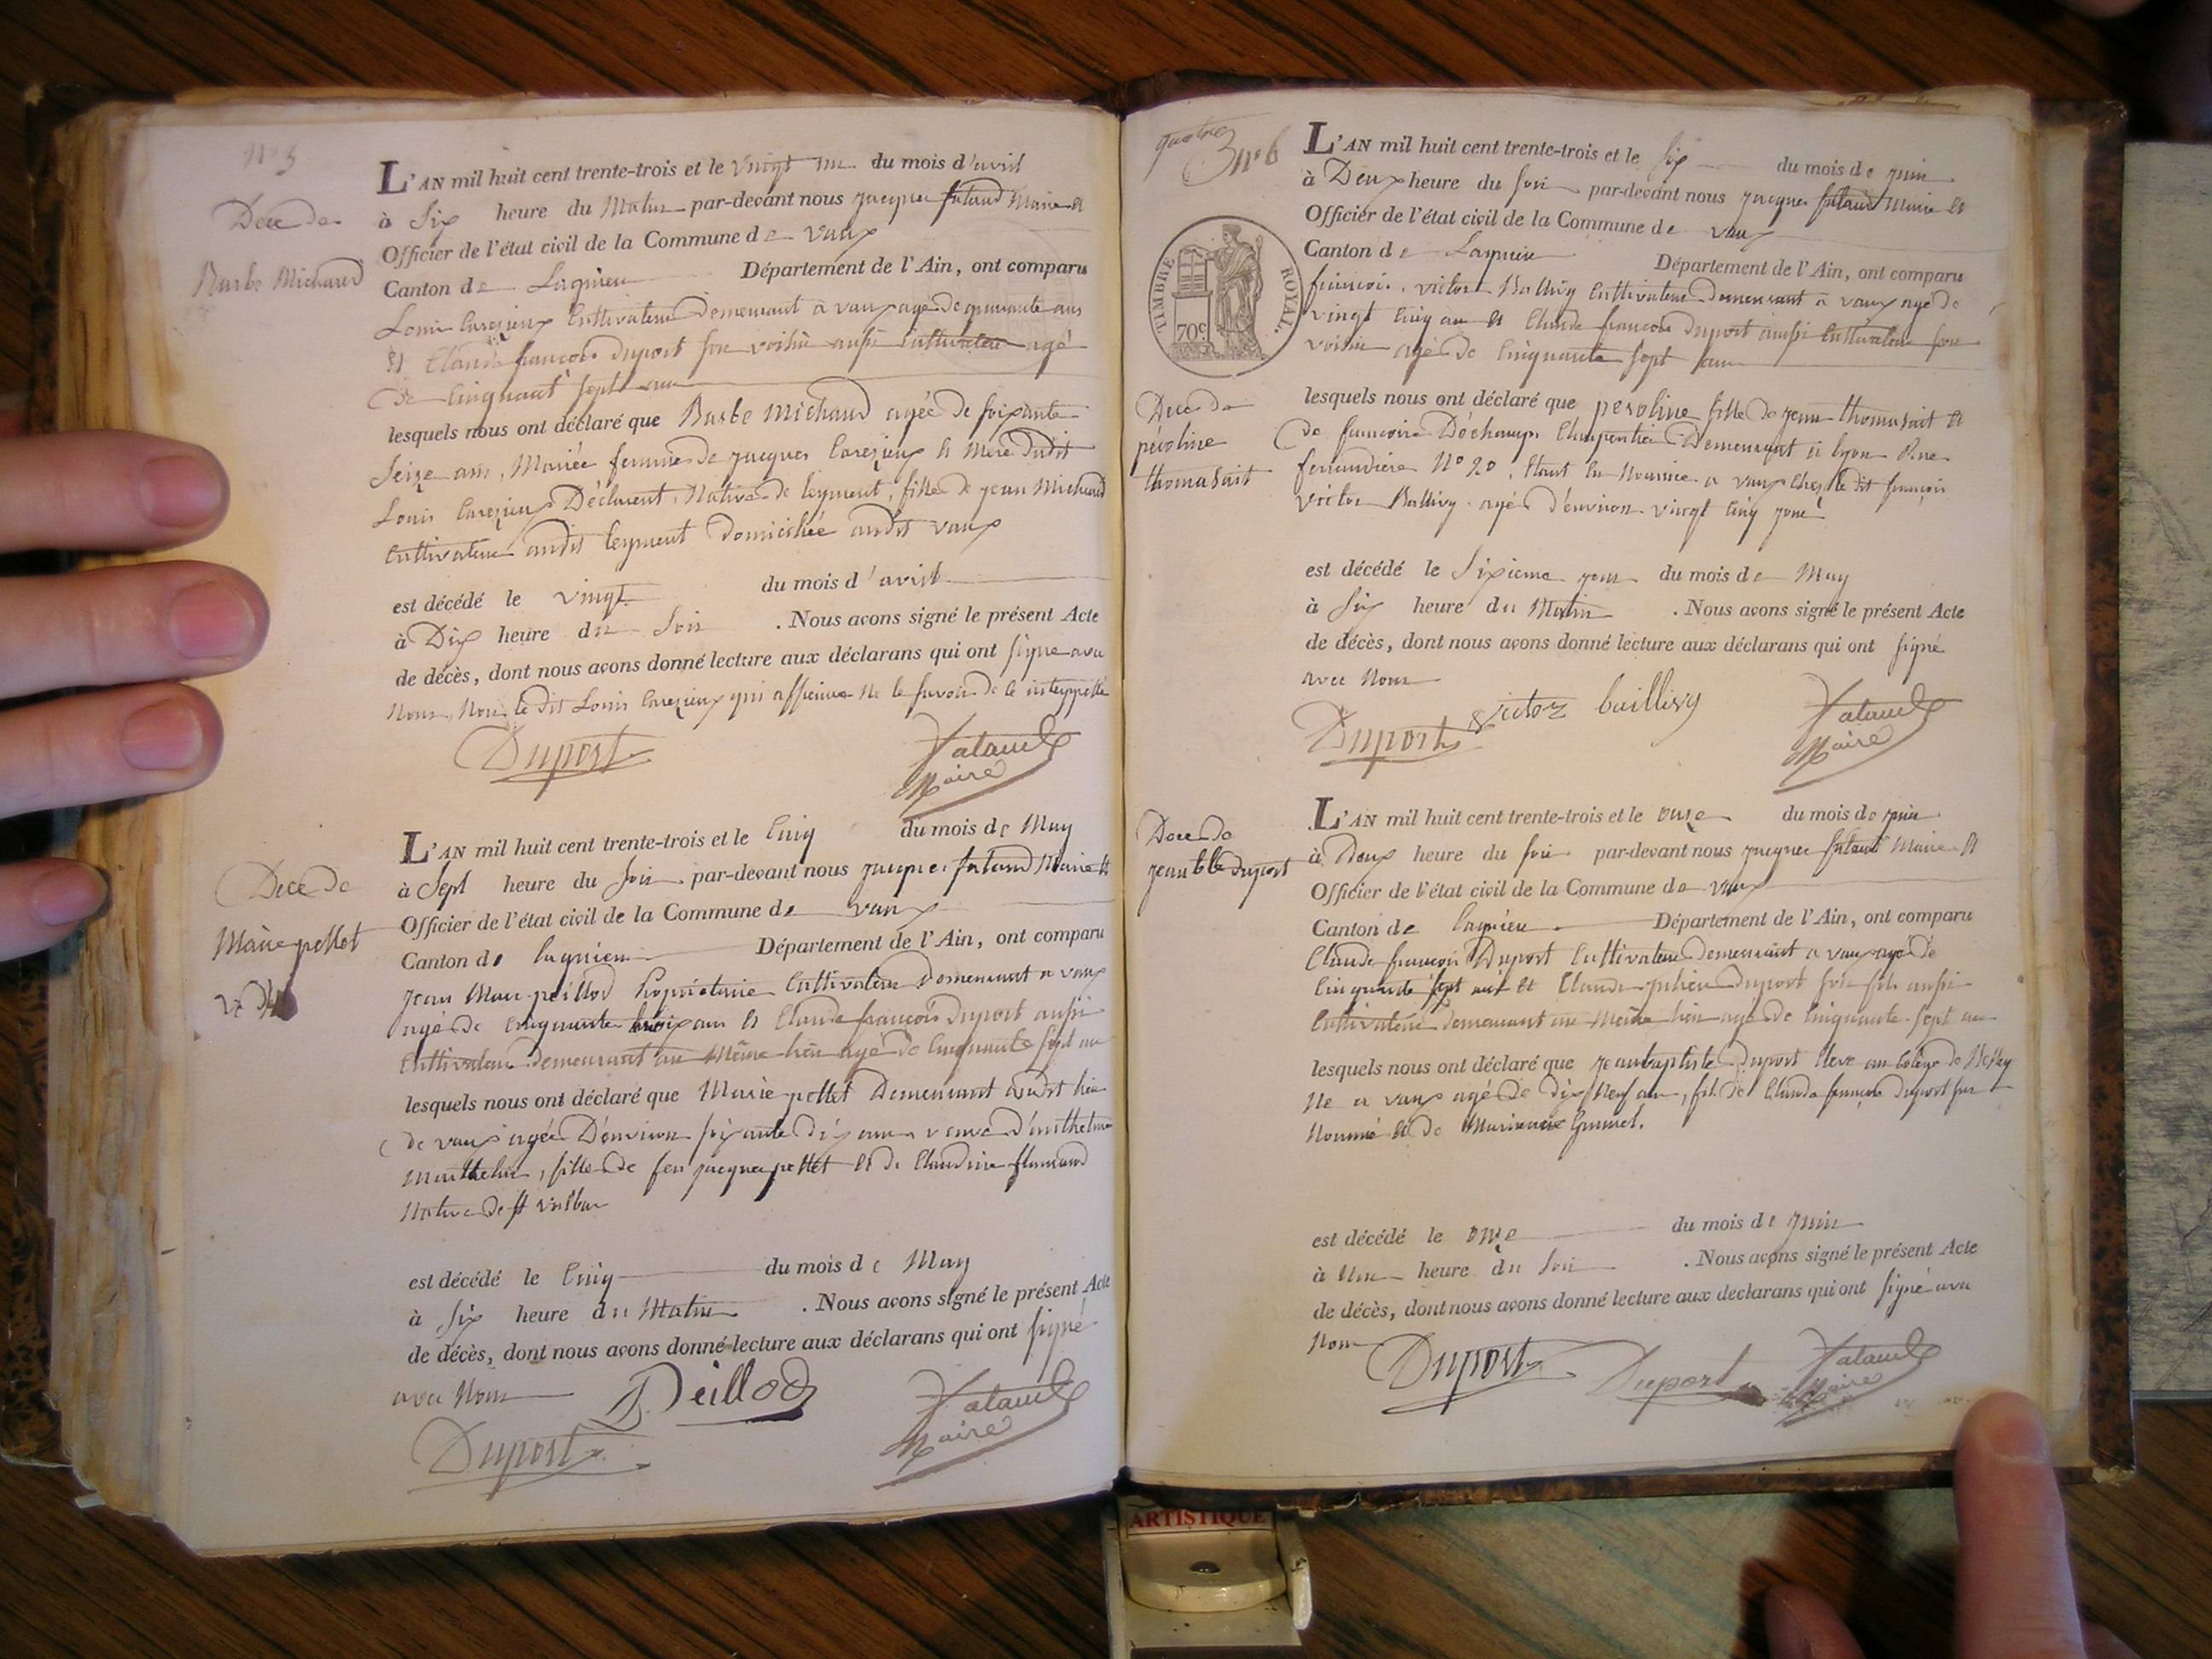 N° 5
Deces de
Barbe Michaud
L'AN mil huit cent trente-trois et le vingt un du mois d'avril
à Six heure du Matin par-devant nous jacques fataud Maire et
Officier de l'état civil de la Commune de vaux
Canton de Lagnieu Département de l'Ain, ont comparu
Louis Carezieux Cultivateur demeurant à vaux agé de quarante ans
et Claude françois Duport son voisin aussi Cultivateur agé
de Cinquant sept ans
lesquels nous ont déclaré que Barbe Michaud agée de soixante
Seize ans, Mariée femme de jacques Carezieux et Mere dudit
Louis Carezieux Déclarent, Native de leyment, fille de jean Michaud
Cultivateur audit leyment Domiciliée audit vaux
est décédé le vingt du mois d'avril
à Dix heure du Soir . Nous avons signé le présent Acte
de décès, dont nous avons donné lecture aux déclarans qui ont signé avec
Nous, Non le dit Louis Carezieux qui affirme Ne le savoir de ce interppellé
Duport Fataud
Maire
Dece de
Marie pettet
L'AN mil huit cent trente-trois et le Cinq du mois de May
à Sept heure du soir par-devant nous jacques fataud Maire et
Officier de l'état civil de la Commune de vaux
Canton de lagnieu Département de l'Ain, ont comparu
Jean Marc peillod Propriétaire Cultivateur Demeurant a vaux
agé de Cinquante trois ans et Claude françois Duport aussi
Cultivateur demeurant au Même lieu agé de Cinquante sept an
lesquels nous ont déclaré que Marie pettet Demeurant audit lieu
de vaux agée D'environ soixante Dix ans veuve D'anthelme
Marthelin, fille de feu jacque pettet et de Claudine flamand
Native de St vulbas
est décédé le Cinq du mois de May
à Six heure du Matin . Nous avons signé le présent Acte
de décès, dont nous avons donné lecture aux déclarans qui ont signé
avec Nous Peillod
Duport Fataud
Maire
quatre
3 N° 6
TIMBRE ROYAL.
70c
Dece de
péroline
thomasait
L'AN mil huit cent trente-trois et le six du mois de juin
à Deux heure du soir par-devant nous jacques fataud Maire et
Officier de l'état civil de la Commune de vaux
Canton de Lagnieu Département de l'Ain, ont comparu
françois victor Ballivy Cultivateur demeurant à vaux agé de
vingt Cinq an et Claude françois Duport aussi Cultivateur son
voisin agé de Cinquante sept ans
lesquels nous ont déclaré que peroline fille de jean thomasait et
de francoise Déchamps Charpentier Demeurant à lyon Rue
ferrandière N° 20, Etant En Nourrice a vaux Chez le dit françois
victor Ballivy agée d'environ vingt Cinq jour
est décédé le Sixieme jour du mois de May
à Six heure du Matin . Nous avons signé le présent Acte
de décès, dont nous avons donné lecture aux déclarans qui ont signé
avec Nous
Duport victor baillivy Fataud
Maire
Dece de
jean bte Duport
L'AN mil huit cent trente-trois et le onze du mois de juin
à Deux heure du soir par-devant nous jacques fataud Maire et
Officier de l'état civil de la Commune de vaux
Canton de lagnieu Département de l'Ain, ont comparu
Claude françois Duport Cultivateur demeurant a vaux agé de
Cinquante sept ans et Claude Duport son fils aussi
Cultivateur demeurant au Meme lieu agé de Cinquante sept an
lesquels nous ont déclaré que jeanbaptiste Duport Eleve au Colège de Belley
Ne a vaux agé de dix Neuf ans, fils de Claude françois Duport sus
Nommé et de Marianne
est décédé le onze du mois de juin
à une heure du Soir . Nous avons signé le présent Acte
de décès, dont nous avons donné lecture aux déclarans qui ont signé avec
Nous
Duport Duport Fataud
Maire
ARTISTIQUE